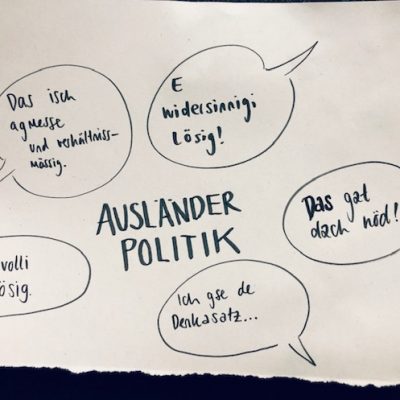 Das isch
agmesse
und verhältniss-
mässig.
E
widersinnigi
Lösig!
AUSLÄNDER
POLITIK
Das gat
doch nöd!
volli
ösig.
Ich gse de
Denkasatz...